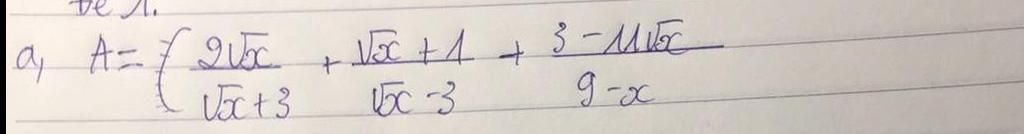 be 1.
a, A = ( 2√x / √x + 3 + √x + 1 / √x - 3 + 3 - 11√x / 9 - x